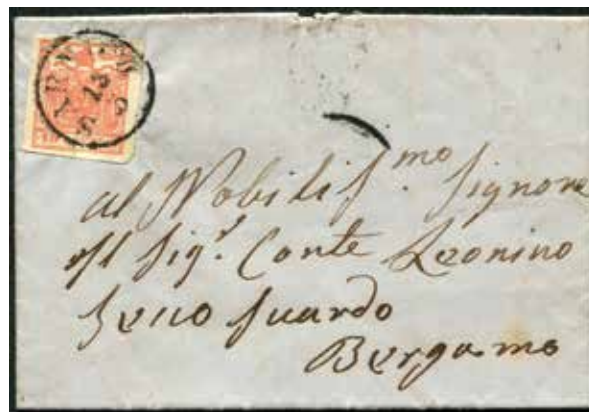 13
al Nobilis.mo Signore
Il Sig.r Conte Leonino
Secco Suardo
Bergamo